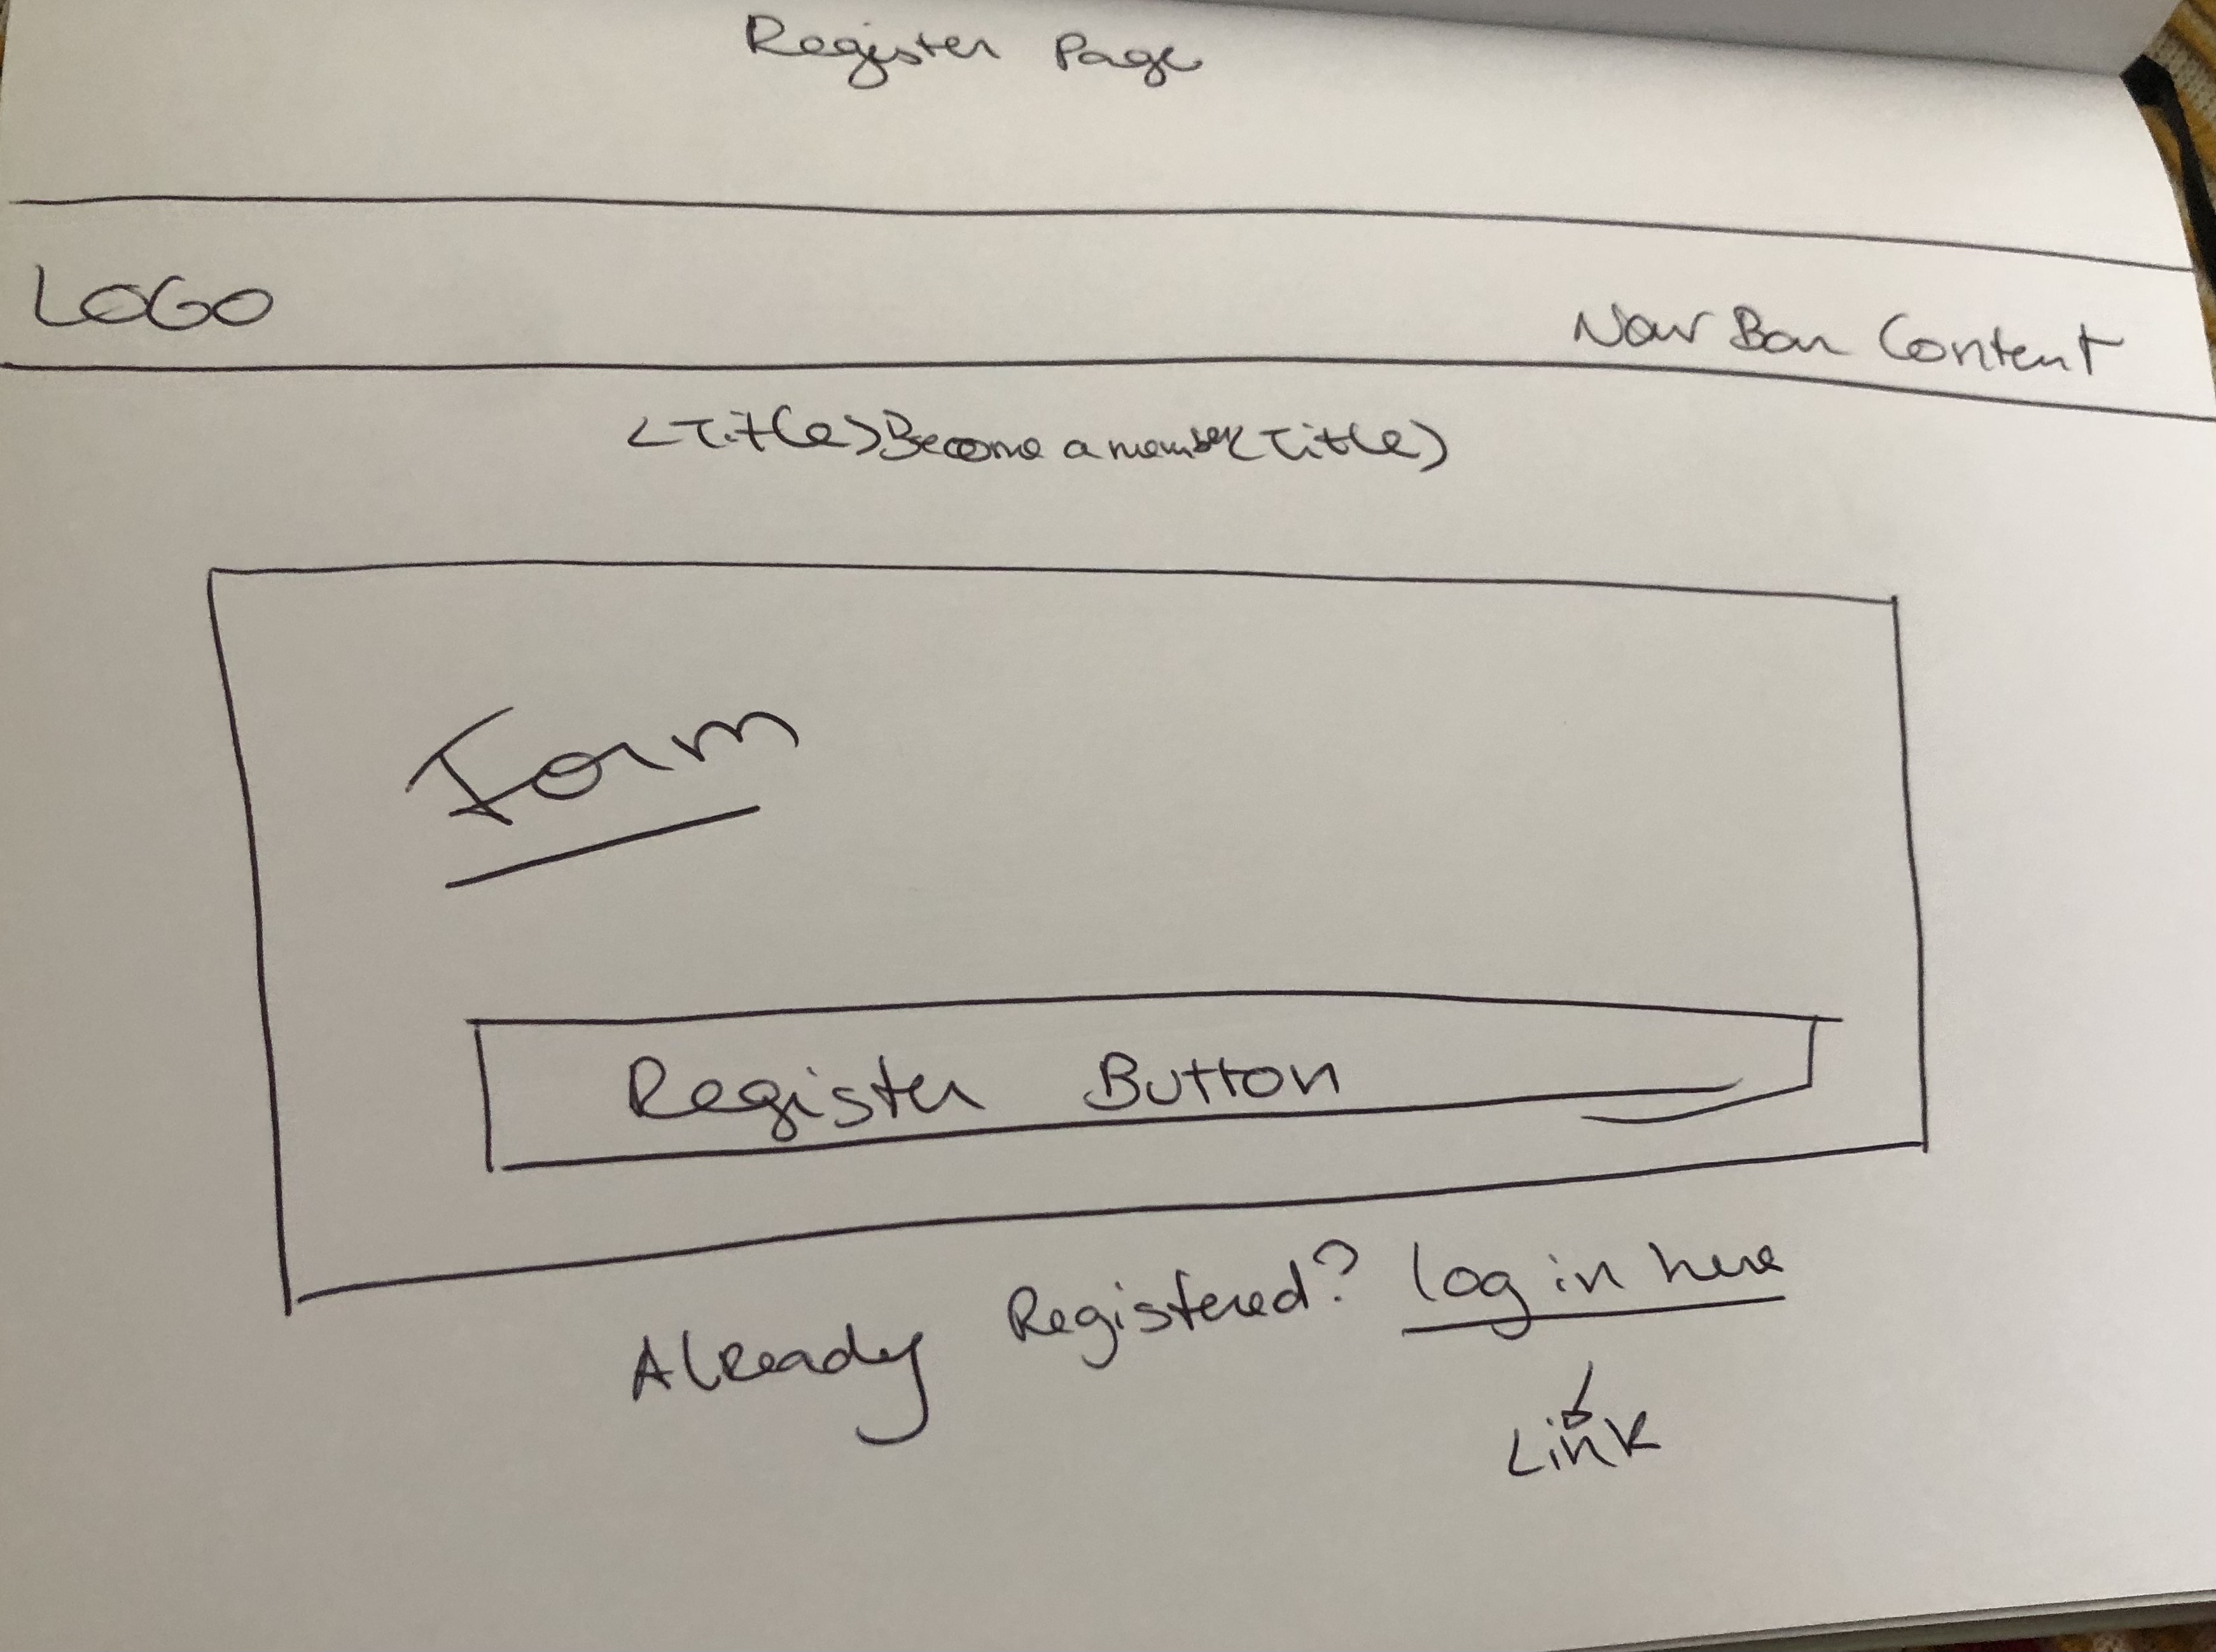 Register Page
LOGO
Nav Bar Content
<Title>Become a member<Title>
Form
Register Button
Already Registered? log in here
Link